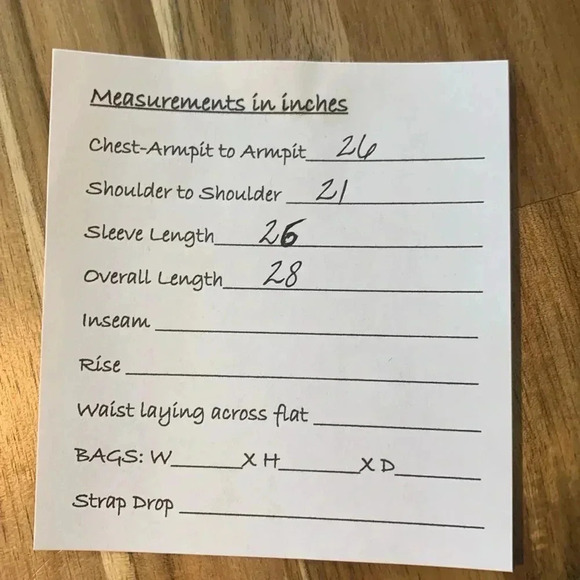 Measurements in inches
Chest-Armpit to Armpit 26
Shoulder to Shoulder 21
Sleeve Length 26
Overall Length 28
Inseam
Rise
Waist laying across flat
BAGS: W______X H_______X D_______
Strap Drop